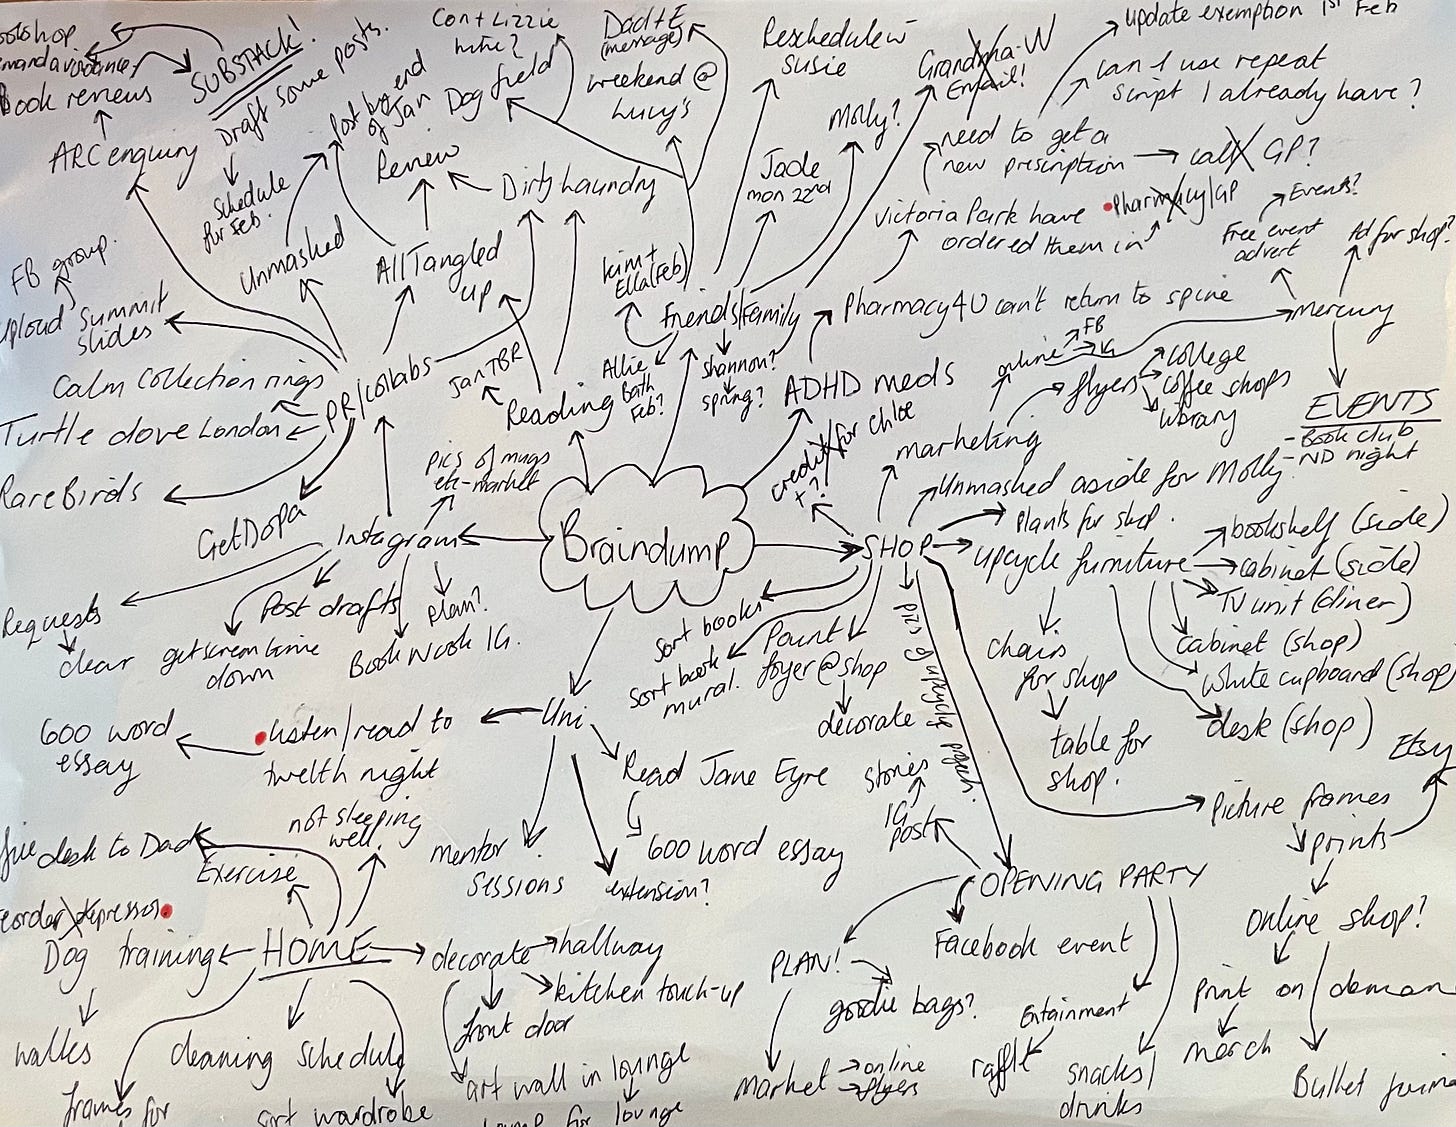 Bookshop
demand avoidance
Book reviews
SUBSTACK!
Draft some posts.
Schedule
for Feb.
ARC enquiry
Post by end
of Jan
Review
Con + Lizzie
Dog field
Dad + E
(message)
weekend @
Lucy's
Reschedule w
Susie
Molly?
Jade
mon 22nd
Grandma-W
Email!
update exemption 1st Feb
can I use repeat
script I already have?
need to get a
new prescription
call GP?
Pharmacy/GP
Victoria Park have
ordered them in
Free event
advert
Events?
Ad for shop?
Mercury
FB group.
upload summit
slides
Unmasked
All Tangled
up
Dirty Laundry
Kim +
Ella (Feb)
Friends/Family
Allie
Bath
Feb?
Shannon?
Spring?
Pharmacy4U can't return to spine
ADHD meds
Calm Collection rings
Turtle dove London
Rare Birds
GetDopa
PR/collabs
Jan TBR
Reading
pics of mugs
etc-market
Instagram
Requests
clear
Post drafts
get screen time
down
plan?
Book Nook IG.
Braindump
credit/for chloe
+?
SHOP
marketing
online
FB
IG
flyers
college
coffee shops
library
EVENTS
- Book club
- ND night
Unmasked aside for Molly
Plants for shop.
upcycle furniture
bookshelf (side)
cabinet (side)
TV unit (diner)
cabinet (shop)
white cupboard (shop)
desk (shop)
chairs
for shop
table for
shop.
sort books
sort book
mural.
Paint
foyer @ shop
decorate
pics of upcycle project.
Picture frames
prints
Etsy
online shop?
print on demand
merch
Bullet
Uni
listen/read to
twelth night
600 word
essay
Read Jane Eyre
600 word essay
mentor
sessions
extension?
OPENING PARTY
IG
post
stories
Facebook event
PLAN!
goodie bags?
Market
online
flyers
Entainment
raffle
snacks/
drinks
HOME
not sleeping
well.
Exercise
desk to Dad
Dog training
walks
frames for
cleaning schedule
sort wardrobe
decorate
hallway
kitchen touch-up
front door
art wall in lounge
for lounge